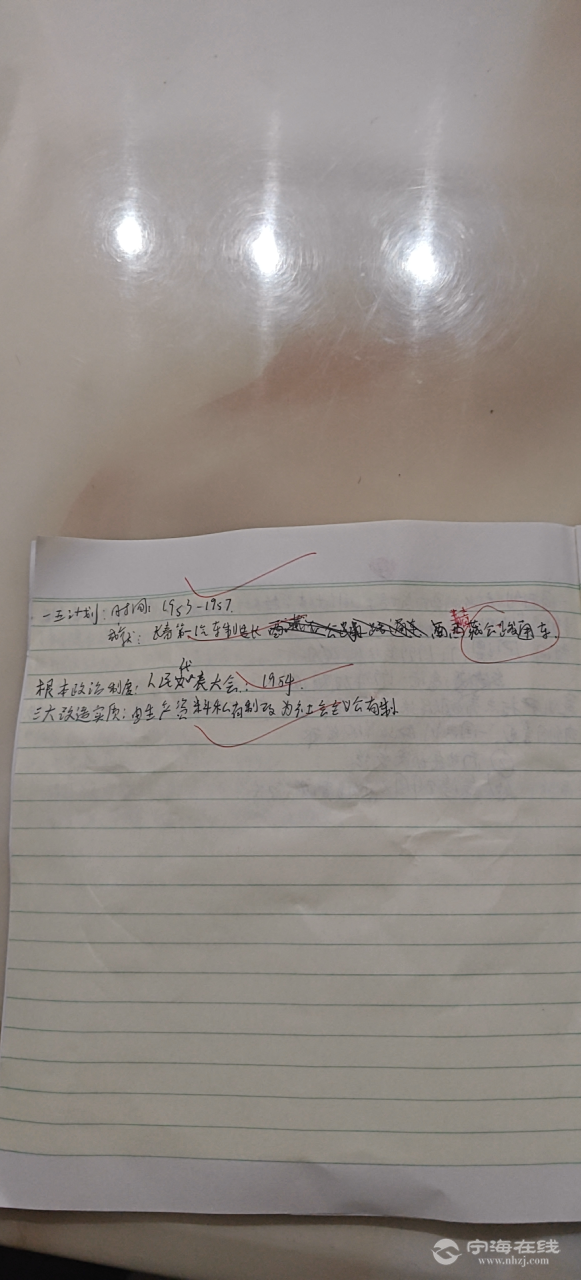 一五计划:时间:1953-1957.
长春第一汽车制造 藏公路通车.
根本政治制度:人民代表大会. 1954.
三大改造实质:由生产资料私有制改为社会主义公有制
宁海在线
www.nhzj.com